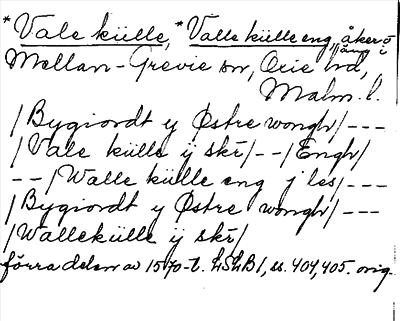 *Vale külle, *Valle külle eng, åker o.
äng i
Mellan-Grevie sn, Oxie hd,
Malm. l.
/Bygiordt y Østre wongh/---
/Vale külle ij skr/--/Engh/
--/Walle külle eng j les/---
/Bygiordt y Østre wongh/---
/Wallekülle ij skr/
förra delen av 1570-t. LSLB1, ss. 404, 405. orig.